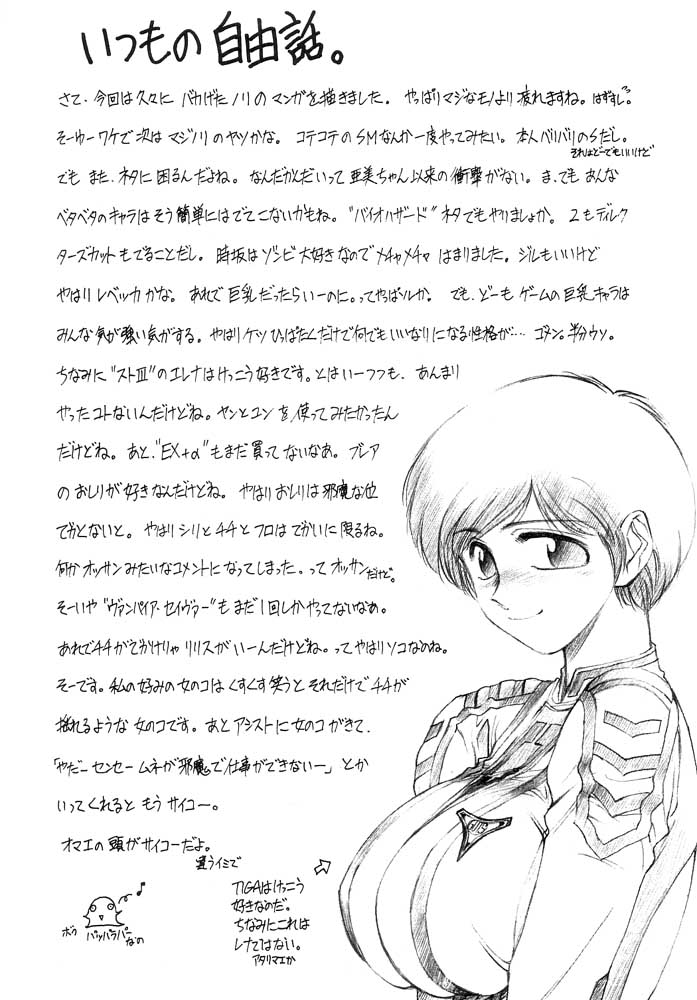 いつもの自由話。
さて、今回は久々にバカげたノリのマンガを描きました。やっぱりマジなモノより疲れますね。はずすし。
そーゆーワケで次はマジノリのヤツかな。コテコテのSMなんか一度やってみたい。本人バリバリのSだし。
それはどーでもいいけど
でもまた、ネタに困るんだよね。なんだかんだいって亜美ちゃん以来の衝撃がない。ま、でもあんな
ベタベタのキャラはそう簡単にはでてこないかもね。"バイオハザード"ネタでもやりましょか。2もディレク
ターズカットもでることだし。時坂はゾンビ大好きなのでメチャメチャはまりました。ジルもいいけど
やはりレベッカかな。あれで巨乳だったらいーのに。ってやっぱソレか。でも、どーもゲームの巨乳キャラは
みんな気が強い気がする。やはりケツひっぱたくだけで何でもいいなりになる性格が…コタン。半分ウソ。
ちなみに"ストⅢ"のエレナはけっこう好きです。とはいーつつも、あんまり
やったコトないんだけどね。ヤンとユンを使ってみたかったん
だけどね。あと、"EX+α"もまだ買ってないなあ。ブレア
のおしりが好きなんだけどね。やはりおしりは邪魔な位
でかとないと。やはりシリとチチとフロはでかいに限るね。
何かオッサンみたいなコメントになってしまった。ってオッサンだけど。
そーいや"ヴァンパイア・セイヴァー"もまだ1回しかやってないなあ。
あれでチチがでかけりゃリリスがいーんだけどね。ってやはりソコなのね。
そーです。私の好みの女のコはくすくす笑うとそれだけでチチが
揺れるような女のコです。あとアシストに女のコがきて、
「やだーセンセームネが邪魔で仕事ができないー」とか
いってくれるともうサイコー。
オマエの頭がサイコーだよ。
違うイミで
ボク
パッパラパー
なの
TIGAはけっこう
好きなのだ。
ちなみにこれは
レナではない。
アタリマエか
GUTS